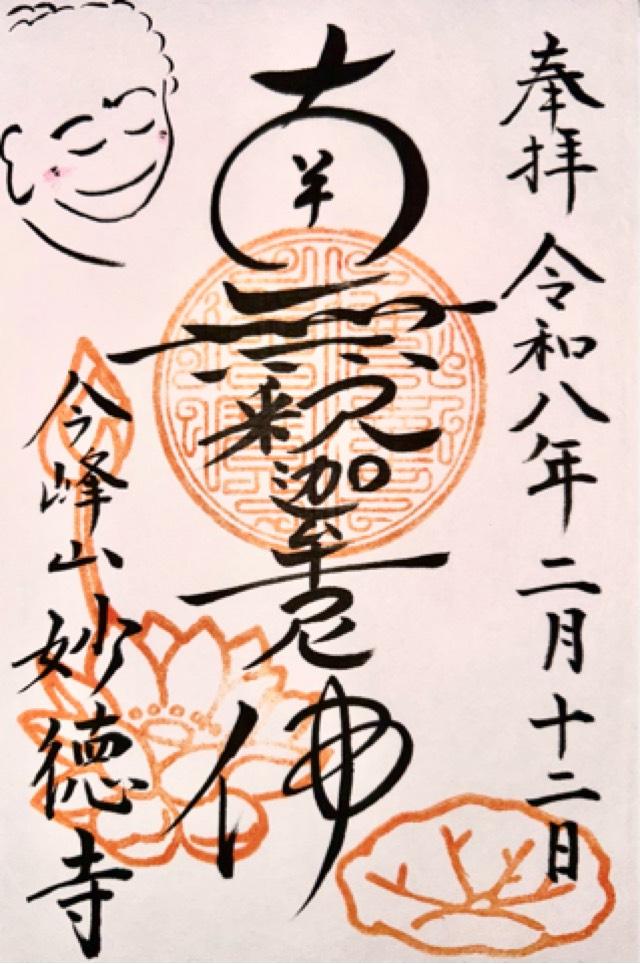 奉拝 令和八年二月十二日
南無釈迦牟尼佛
今峰山 妙徳寺